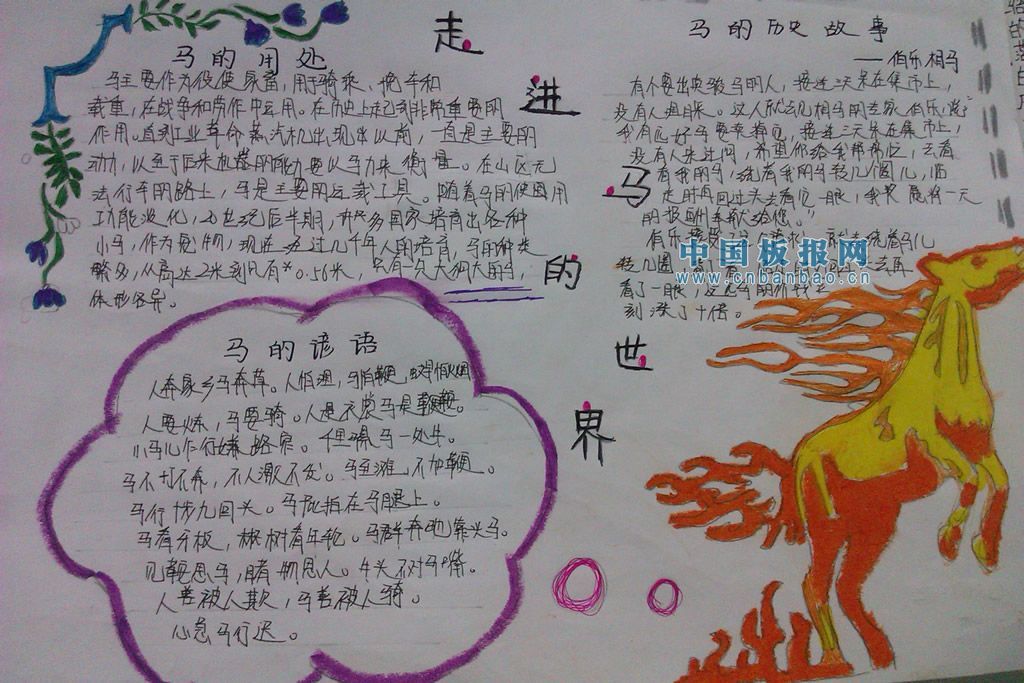 走进马的世界
马的用处
马主要作为役使家畜,用于骑乘、挽车和
载重,在战争和劳作中运用。在历史上起到非常重要的
作用。直到工业革命蒸汽机出现以前,一直是主要的
动力,以至于后来机器的能力要以马力来衡量。在山区无
法行车的路上,马是主要的运载工具。随着马的使用
功能淡化,20世纪后半期,许多国家培育出各种
小马,作为宠物,现在
繁多,从高达2米到只有
体形各异。
马的谚语
人奔家乡马奔草。人怕
人要炼,马要骑。人是衣裳马是鞍。
小马儿乍行嫌路窄。
马不打不奔,不人激不发。
马行十步九回头。马屁拍在马腿上。
马看牙板,树看年轮。马群奔驰靠头马。
见鞍思马,睹物思人。牛头不对马嘴。
人善被人欺,马善被人骑。
心急马行迟。
马的历史故事
——伯乐相马
有个要出卖骏马的人,接连三天呆在集市上,
没有人理睬。这人就去见相马的专家伯乐,说:“
我有匹好马要卖掉它,接连三天呆在集市上,
没有人来过问,希望你给我帮帮忙,去看
看我的马,绕着我的马转几个圈儿,临
走时再回过头去看它一眼,我愿意
的报酬奉献给您。”
伯乐
转几圈
看了一眼,这匹马的价钱
刻涨了十倍。
中国板报网
www.cnbanbao.cn